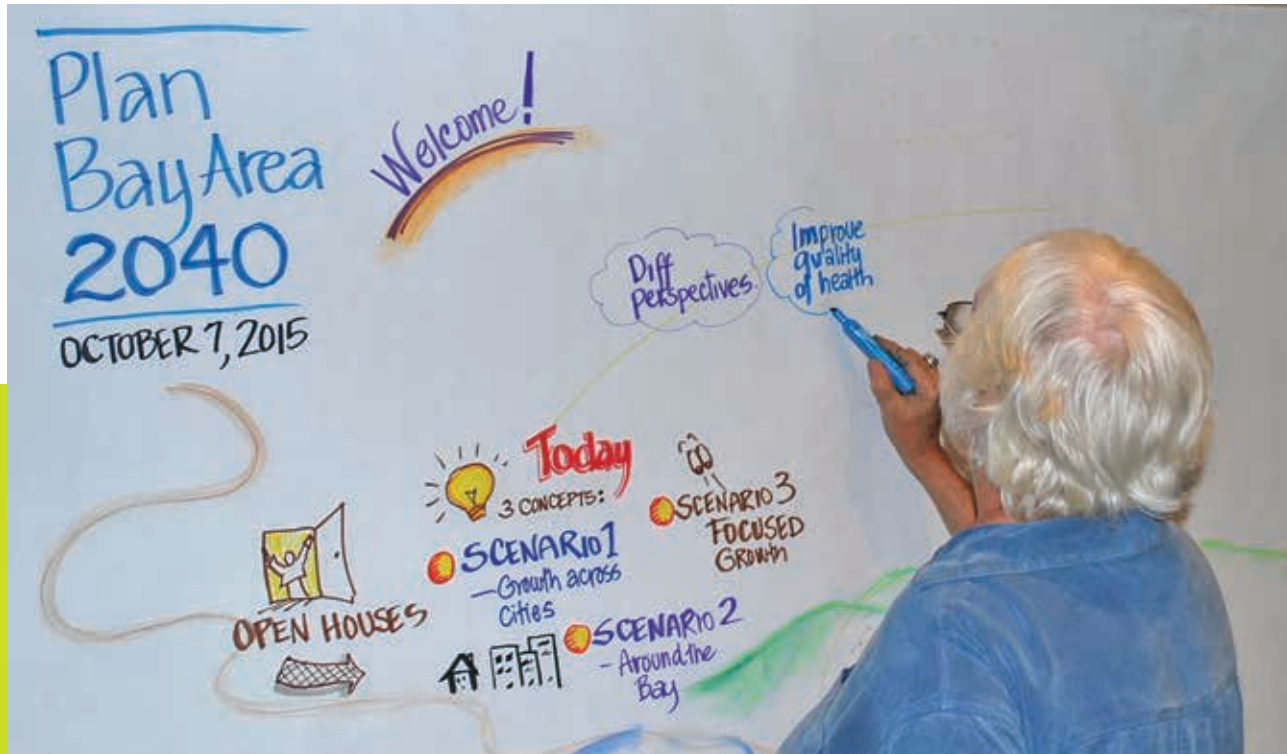 Plan
Bay Area
2040
OCTOBER 7, 2015
Welcome!
Diff
perspectives
Improve
quality
of health
Today
3 CONCEPTS:
SCENARIO 1
– Growth across
Cities
SCENARIO 2
– Around the
Bay
SCENARIO 3
FOCUSED
GROWTH
OPEN HOUSES